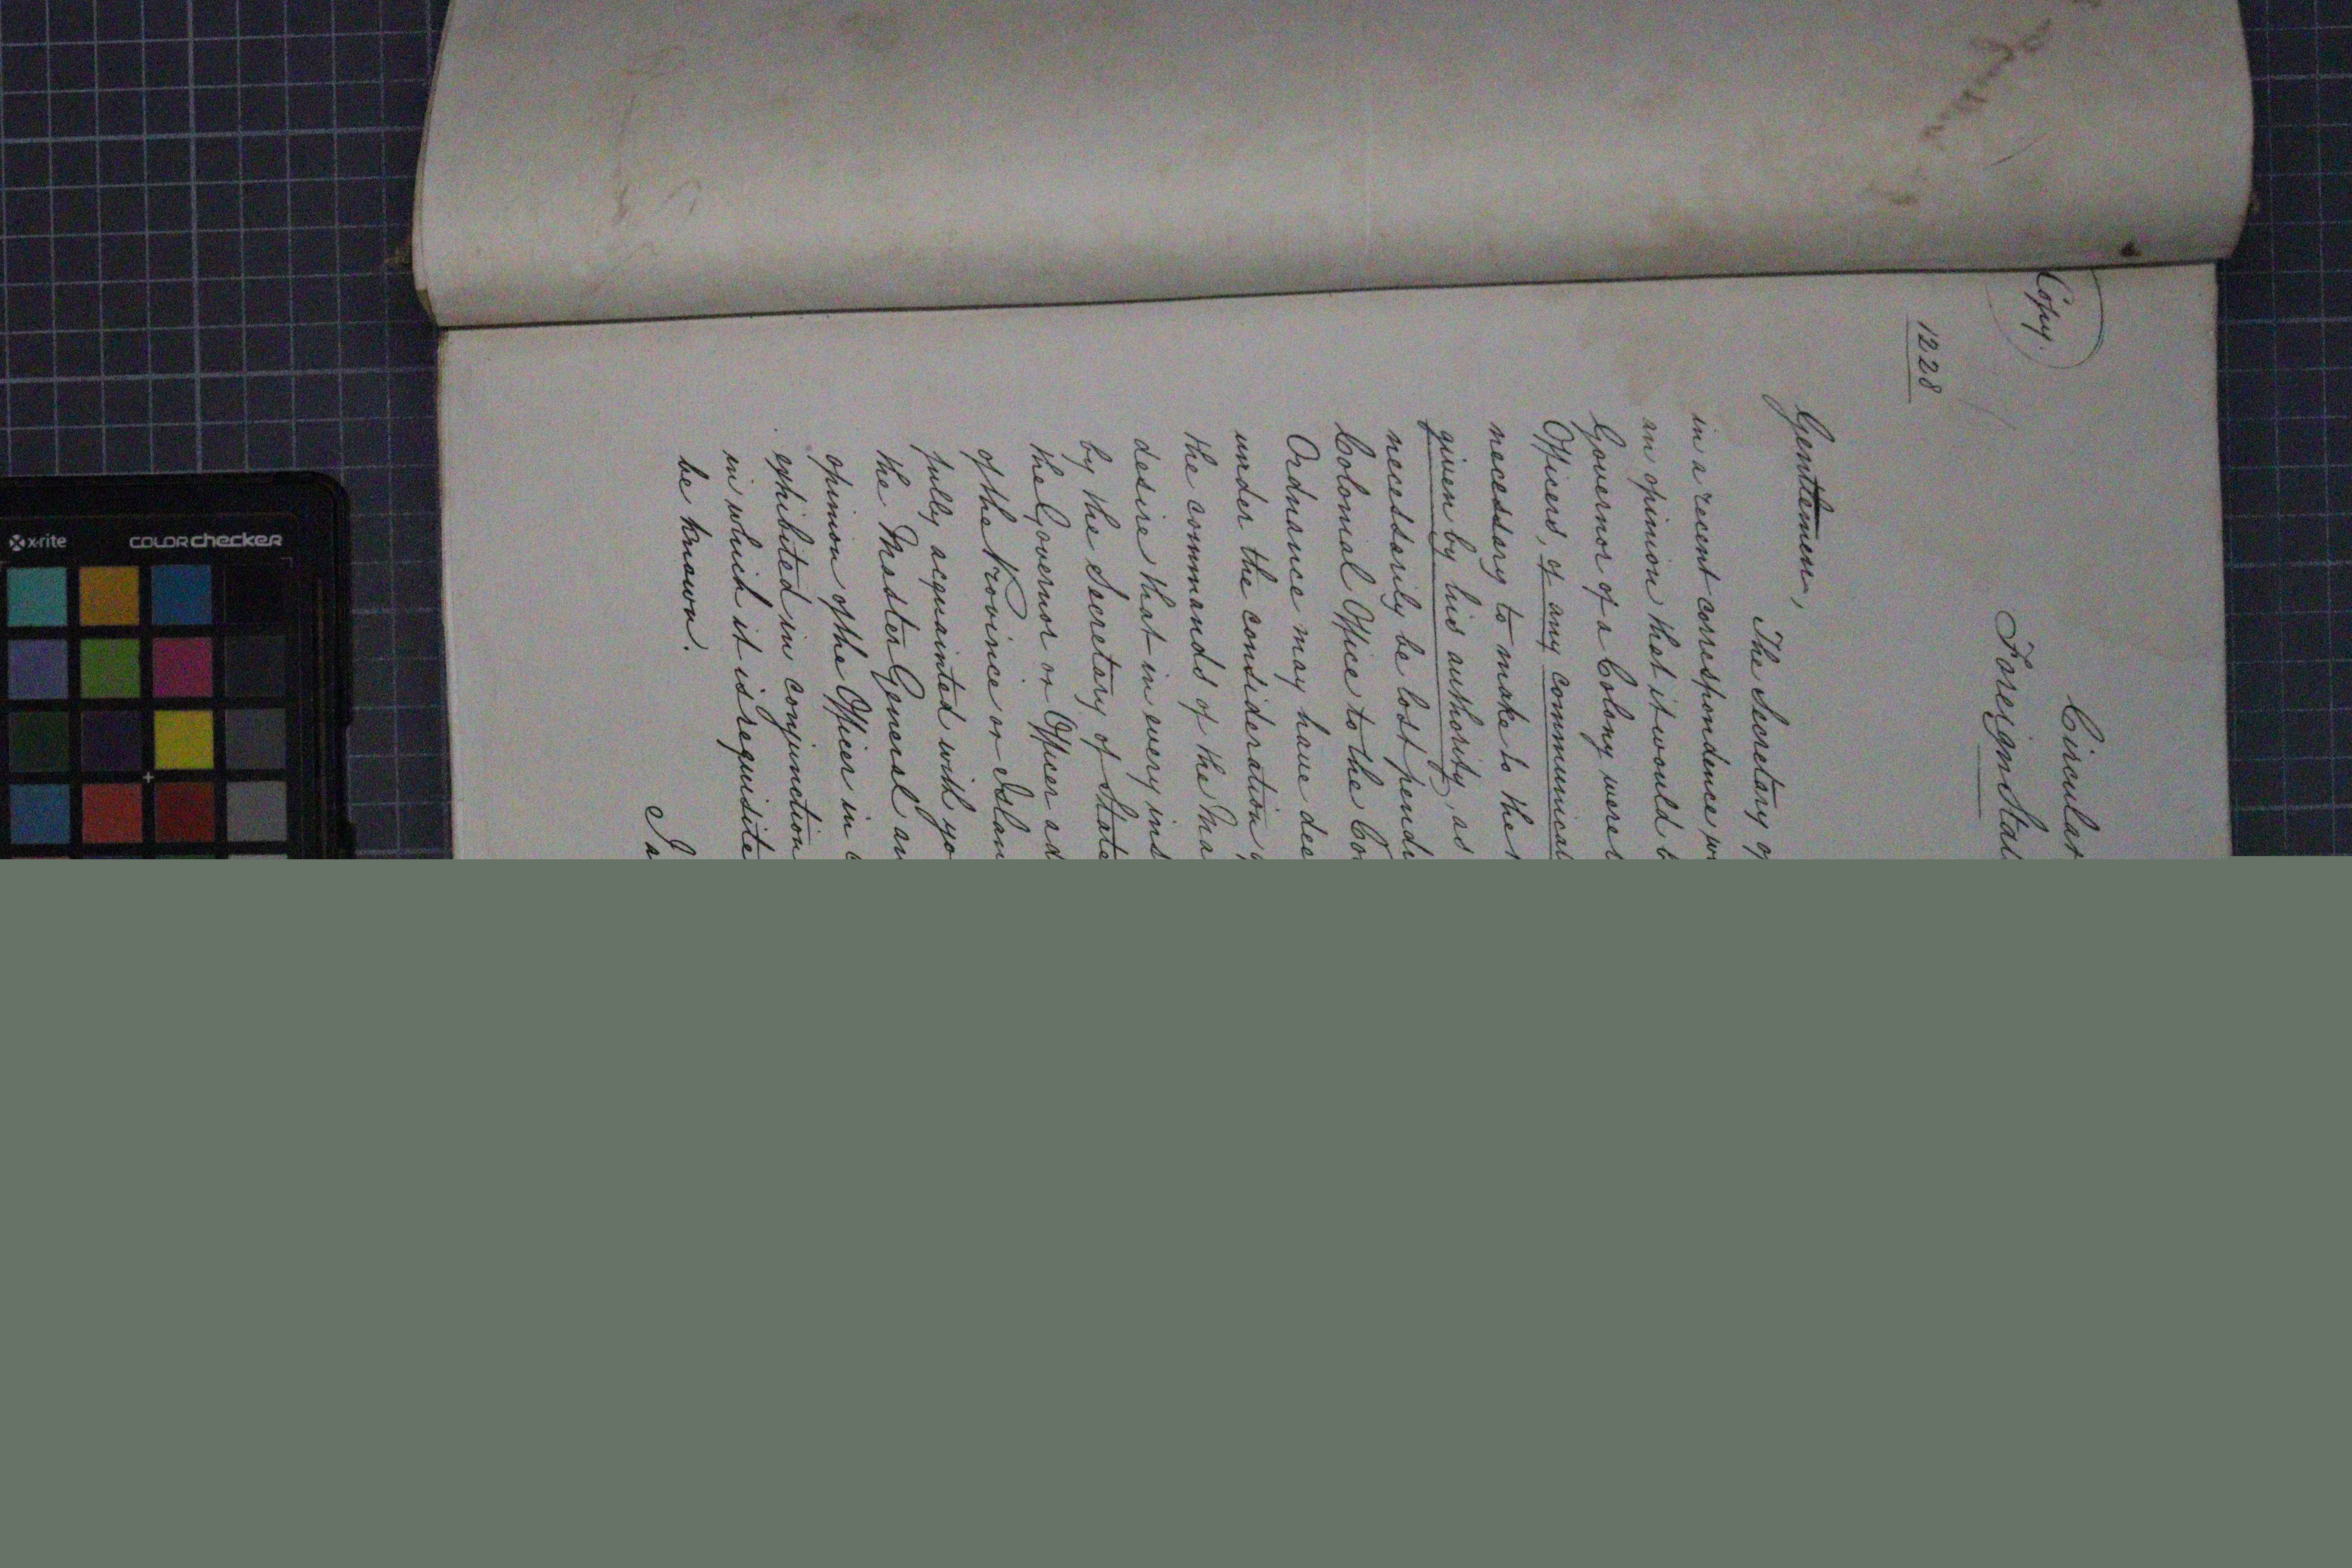 Copy.
1228
Circular
Foreign
Gentlemen,
The Secretary of
in a recent correspondence
an opinion that it would
Governor of a Colony were
Officers, of any
necessary to make to the
given by his authority, as
necessarily be lost
Colonial Office to the
Ordnance may have
under the consideration
the commands of the
desire that in every
by the Secretary of State
the Governor or Officer
of the Province or
fully acquainted with
the Master General
opinion of the Officer in
exhibited in conjunction
in which it is requisite
be known.
I
x-rite colorchecker